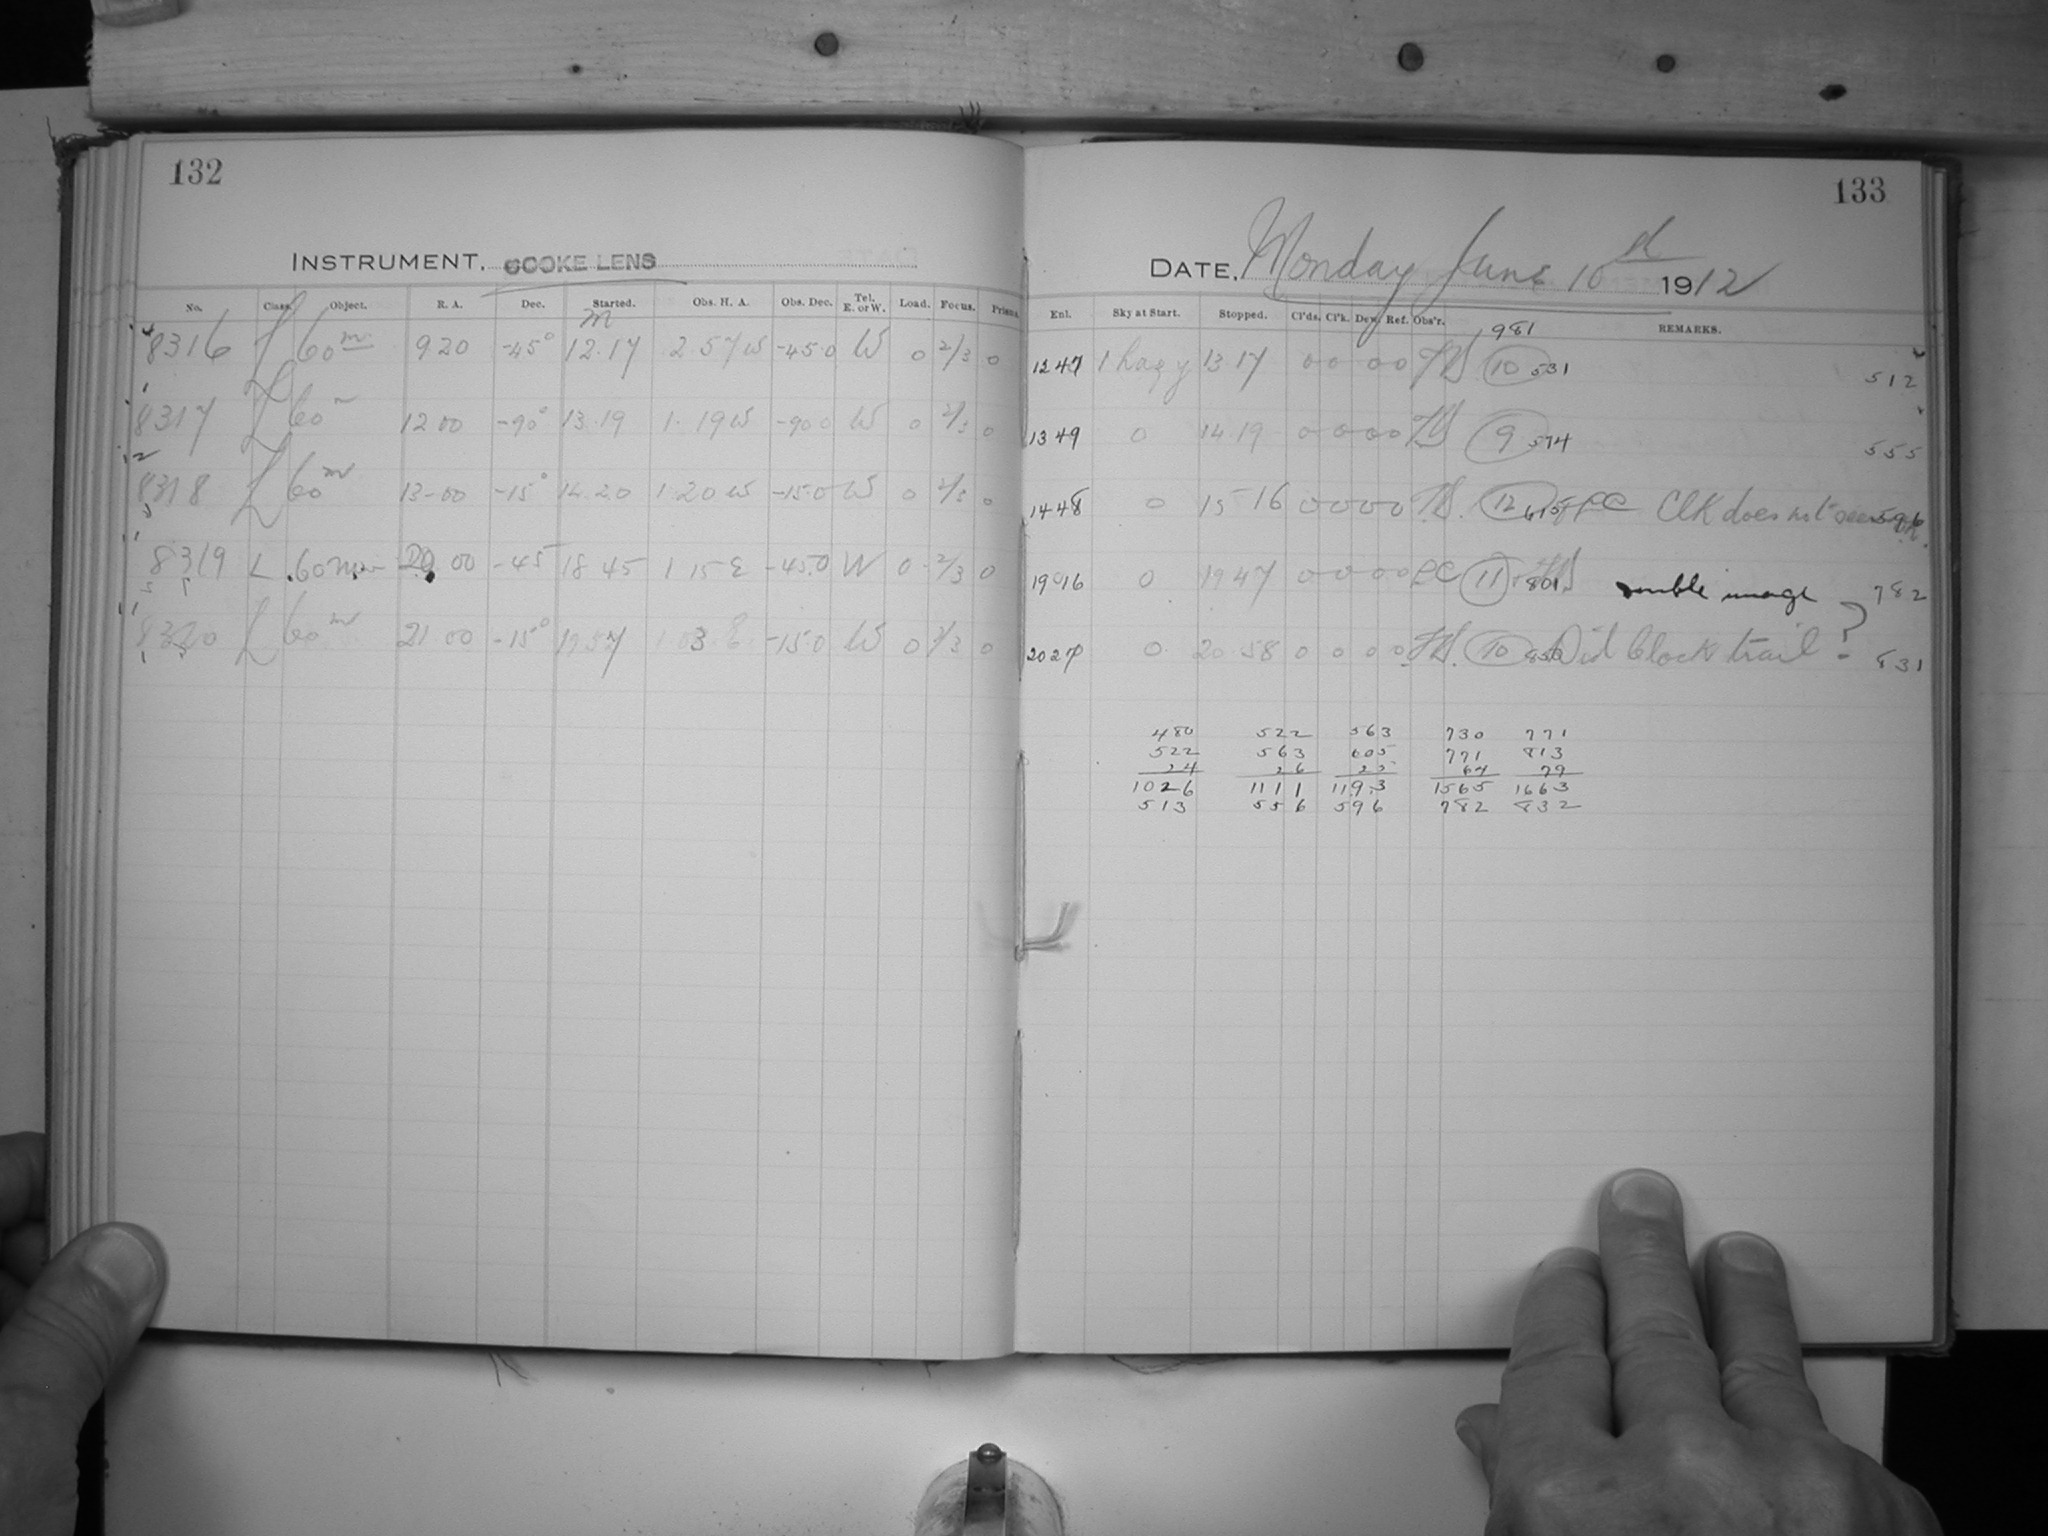 132
INSTRUMENT, COOKE LENS
No. Class. Object. R. A. Dec. Started. Obs. H. A. Obs. Dec. Tel. E. or W. Load. Focus. Prisms.
m
8316 L 60m 9 20 -45° 12.17 2 57 W -45.0 W 0 2/3 0
8317 L 60m 12 00 -90° 13.19 1.19 W -90 0 W 0 2/3 0
8318 L 60m 13-00 -15° 14.20 1 20 W -15.0 W 0 2/3 0
8319 L 60m 20 00 -45 18 45 1 15 E -45.0 W 0 2/3 0
8320 L 60m 21 00 -15° 19 57 1 03 E -15.0 W 0 2/3 0
133
DATE, Monday June 10 1912
Enl. Sky at Start. Stopped. Cl'ds. Cl'k. Dew. Ref. Obs'r. REMARKS.
981
1247 1 hazy 13.17 0 0 0 0 10 531 512
1349 0 14.19 0 0 0 0 9 574 555
1448 0 15 16 0 0 0 0 12 Clk does not seem O.K. 596
1916 0 19 47 0 0 0 0 11 801 double image 782
2027 0 20 58 0 0 0 0 10 850 Did Clock trail? 831
480 522 563 730 771
522 563 605 771 813
24 26 25 64 79
1026 1111 1193 1565 1663
513 556 596 782 832